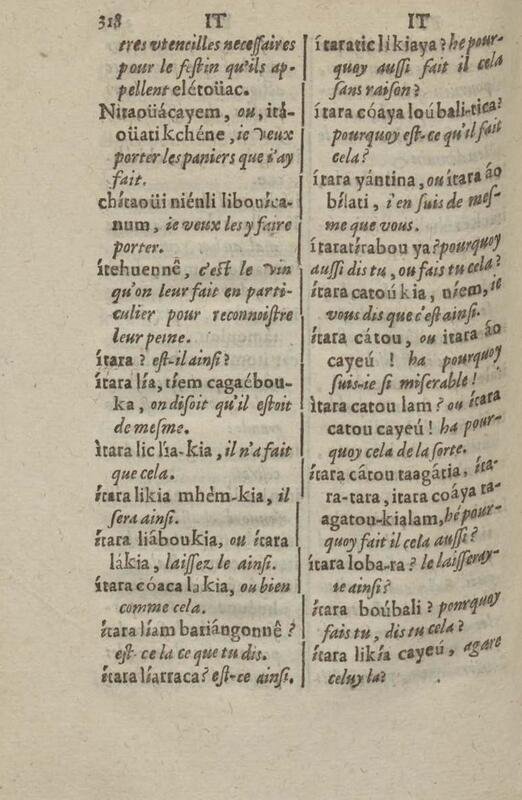 318 IT IT
tres vtencilles necessaires
pour le festin qu'ils ap-
pellent elétoüac.
Nitaoüácayem, ou, itá-
oüati kchéne, ie veux
porter les paniers que i'ay
fait.
chítaoüi niénli libouíca-
num, ie veux les y faire
porter.
ítehuennê, c'est le vin
qu'on leur fait en parti-
culier pour reconnoistre
leur peine.
ítara ? est-il ainsi ?
ítara lía, tíem cagaébou-
ka, on disoit qu'il estoit
de mesme.
ìtara lic lía-kia, il n'a fait
que cela.
ítara likia mhém-kia, il
sera ainsi.
ítara liáboukia, ou ítara
lákia, laissez le ainsi.
ítara cóaca la kia, ou bien
comme cela.
ítara líam bariángonnê ?
est-ce la ce que tu dis.
ítara líarraca ? est-ce ainsi.
ítaratic likiaya ? hé pour-
quoy aussi fait il cela
sans raison ?
ítara cóaya loúbali-tica ?
pourquoy est-ce qu'il fait
cela ?
ítara yántina, ou ítara áo
bílati, i'en suis de mes-
me que vous.
ítaratítabou ya ? pourquoy
aussi dis tu, ou fais tu cela ?
ítara catoú kia, níem, ie
vous dis que c'est ainsi.
ítara cátou, ou itara áo
cayeú ! ha pourquoy
suis-ie si miserable !
ìtara catou lam ? ou ítara
catou cayeú ! ha pour-
quoy cela de la sorte.
ítara cátou taagátia, íta-
ra-tara, itara coáya ta-
agatou-kialam, hé pour-
quoy fait il cela aussi ?
ítara loba-ra ? le laisseray-
ie ainsi ?
ítara boúbali ? ponrquoy
fais tu, dis tu cela ?
ítara likía cayeú, agare
celuy la ?